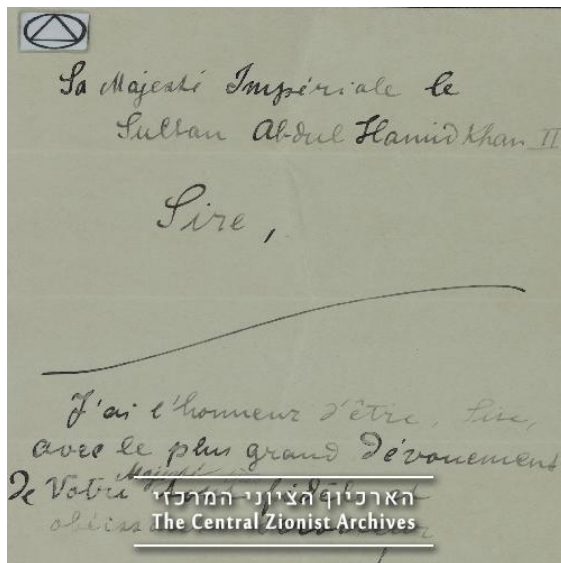 Sa Majesté Impériale le
Sultan Abdul Hamid Khan II
Sire,
J'ai l'honneur d'être, Sire,
avec le plus grand dévouement
Majesté
de Votre
הארכיון הציוני המרכזי
The Central Zionist Archives